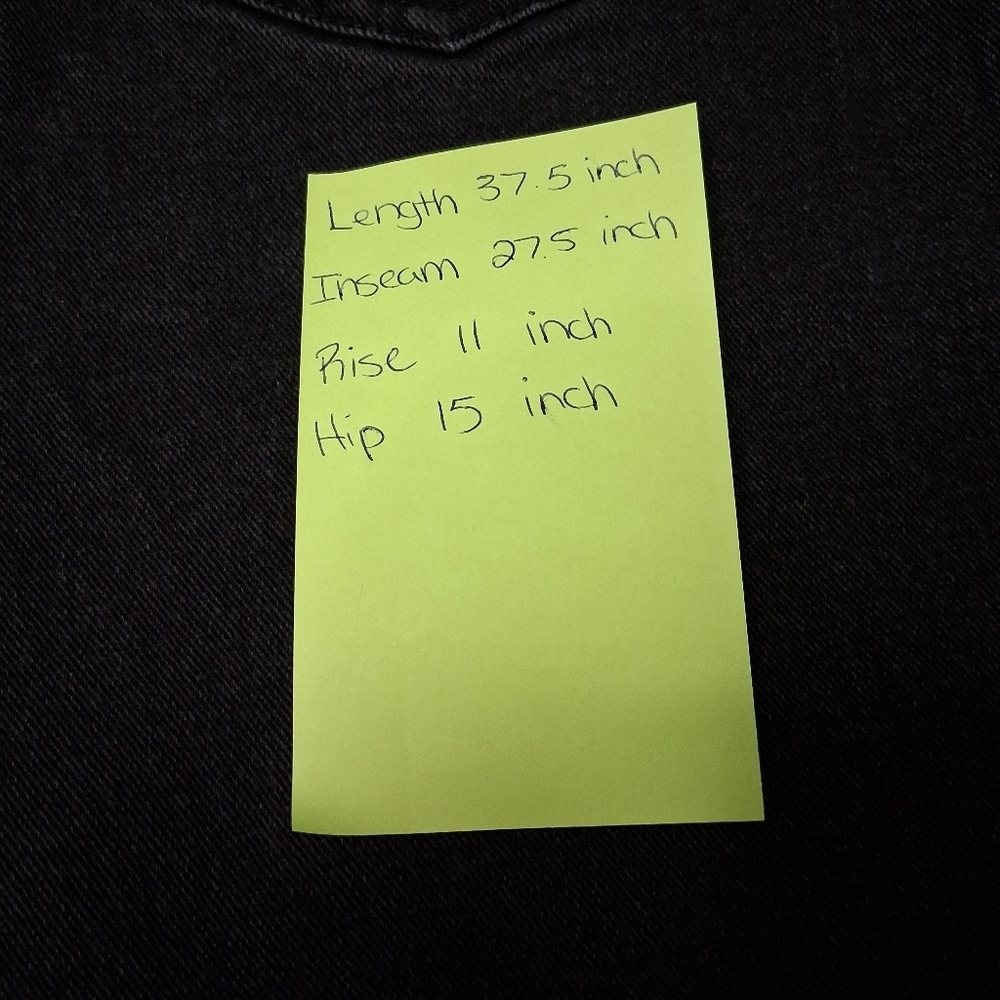 Length 37.5 inch
Inseam 27.5 inch
Rise 11 inch
Hip 15 inch